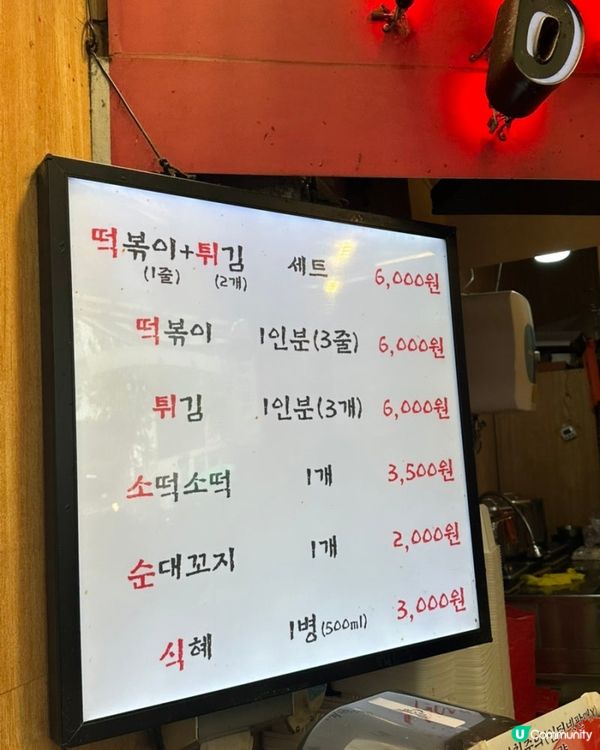 떡볶이+튀김 세트 6,000원
(1줄) (2개)
떡볶이 1인분(3줄) 6,000원
튀김 1인분(3개) 6,000원
소떡소떡 1개 3,500원
순대꼬지 1개 2,000원
식혜 1병(500ml) 3,000원
U Community